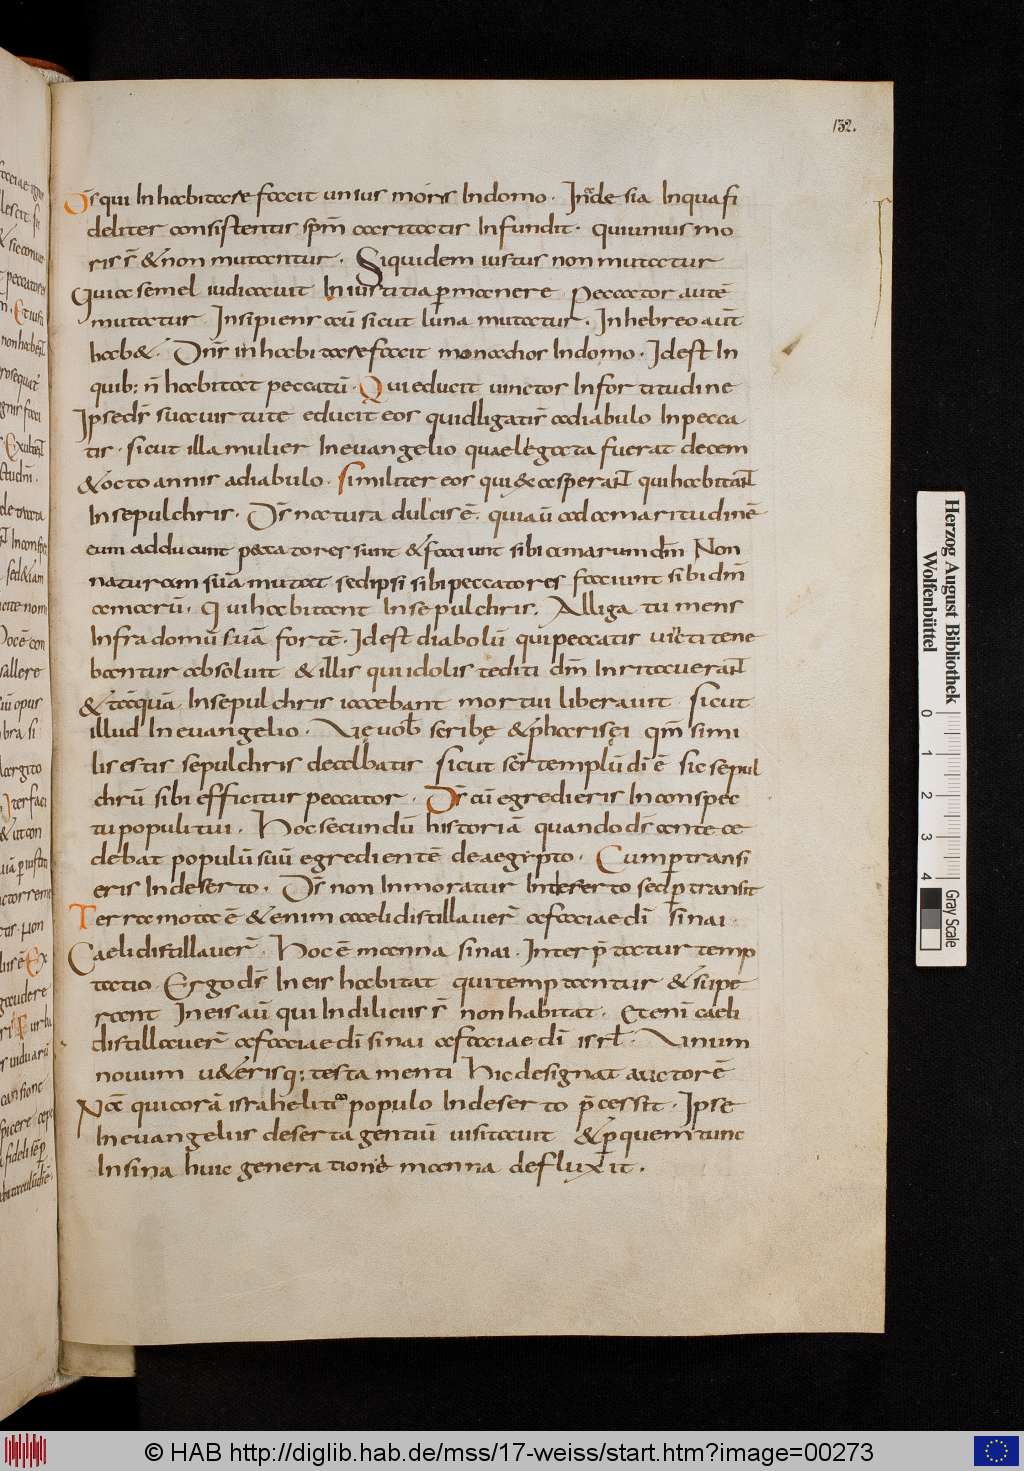 132.
D̄s qui Inhabitare facit unius moris Indomo. In͞de sia Inquafi
deliter consistentis sp̄m caritatis Infundit. quiunius mo
ris s̄ & non mutantur. Siquidem iustus non mutatur
Quia semel iudicavit In iustitia p̄manere Peccator autē
mutatur Insipiens aū sicut luna mutatur. In hebreo aūt
hab&. Dn̄s inhabitare facit monachos Indomo. Idest In
quib; n̄ habitat peccatū. Qui educit vinctos Infortitudine
Ipse ds̄ sua virtute educit eos quidligatis̄ adiabulo In pecca
tis. sicut illa mulier In evangelio quae legata fuerat decem
& octo annis adiabulo. Similiter eos qui exasperant qui habitant
In sepulchris. Ds̄ natura dulcis ē. quia ū ad amaritudinē
eum adducunt peccatores sunt & faciunt sibi amarum dm̄ Non
naturam suā mutat sed ipsi sibi peccatores faciunt sibi dm̄
amarū. Qui habitant In sepulchris. Alliga tu mens
Infra domū suā fortē. Id est diabolū qui peccatis victi tene
bantur absoluit & illis qui idolis tediti dm̄ Inritaverant
& tāquā In sepulchris iacebant mortui liberavit sicut
illud In evangelio. Vę vob̄ scribę & phariseęi qm̄ simi
lis estis sepulchris dealbatis sicut sc̄s templū dī ē sic sepul
chrū sibi efficitur peccator. Ds̄ cū egredieris In conspec
tu populi tui. Hoc secundū historiā quando ds̄ ante ce
debat populū suū egredientē de aegipto. Cum p̄transi
eris In deserto. Ds̄ non Inmoratur In deserto sed p̄transit
Terra mota ē & enim caeli distillaver̄ a faciae dī sinai.
Caeli distillaver̄. Hoc ē manna sinai. Interp̄tatur temp
tatio. Ergo ds̄ In eis habitat qui temptantur & supe
rant In eis aū qui In diliciis s̄ non habitat. Etenī caeli
distillaver̄ a faciae dī sinai a faciae dī isrl̄. Unum
novum v&erisq; testamenti Hic designat auctorē
Nā qui corā israheliti͠co populo In deserto p̄cessit. Ipse
In evangeliis deserta gentiū visitavit & p quem tunc
In sina huic generationē manna defluxit.
Herzog August Bibliothek
Wolfenbüttel
0 1 2 3 4
Gray Scale
© HAB http://diglib.hab.de/mss/17-weiss/start.htm?image=00273